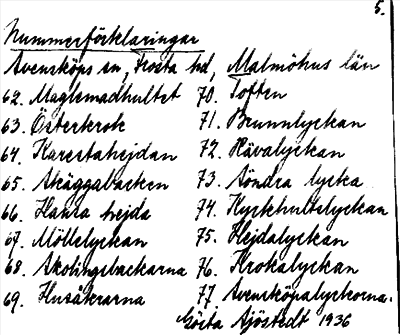 5.
Nummerförklaringar
Svensköps sn, Frosta hd, Malmöhus län
62. Maglemadhultet 70. Toften
63. Österkrok 71. Brunnlyckan
64. Karestahejdan 72. Rävalyckan
65. Skäggabacken 73. Söndra lycka
66. Hansa hejda 74. Kyrkhultslyckan
67. Möllelyckan 75. Hejdalyckan
68. Skolingsbackarna 76. Krokalyckan
69. Husåkrarna 77 Svensköpalyckorna.
Gösta Sjöstedt 1936